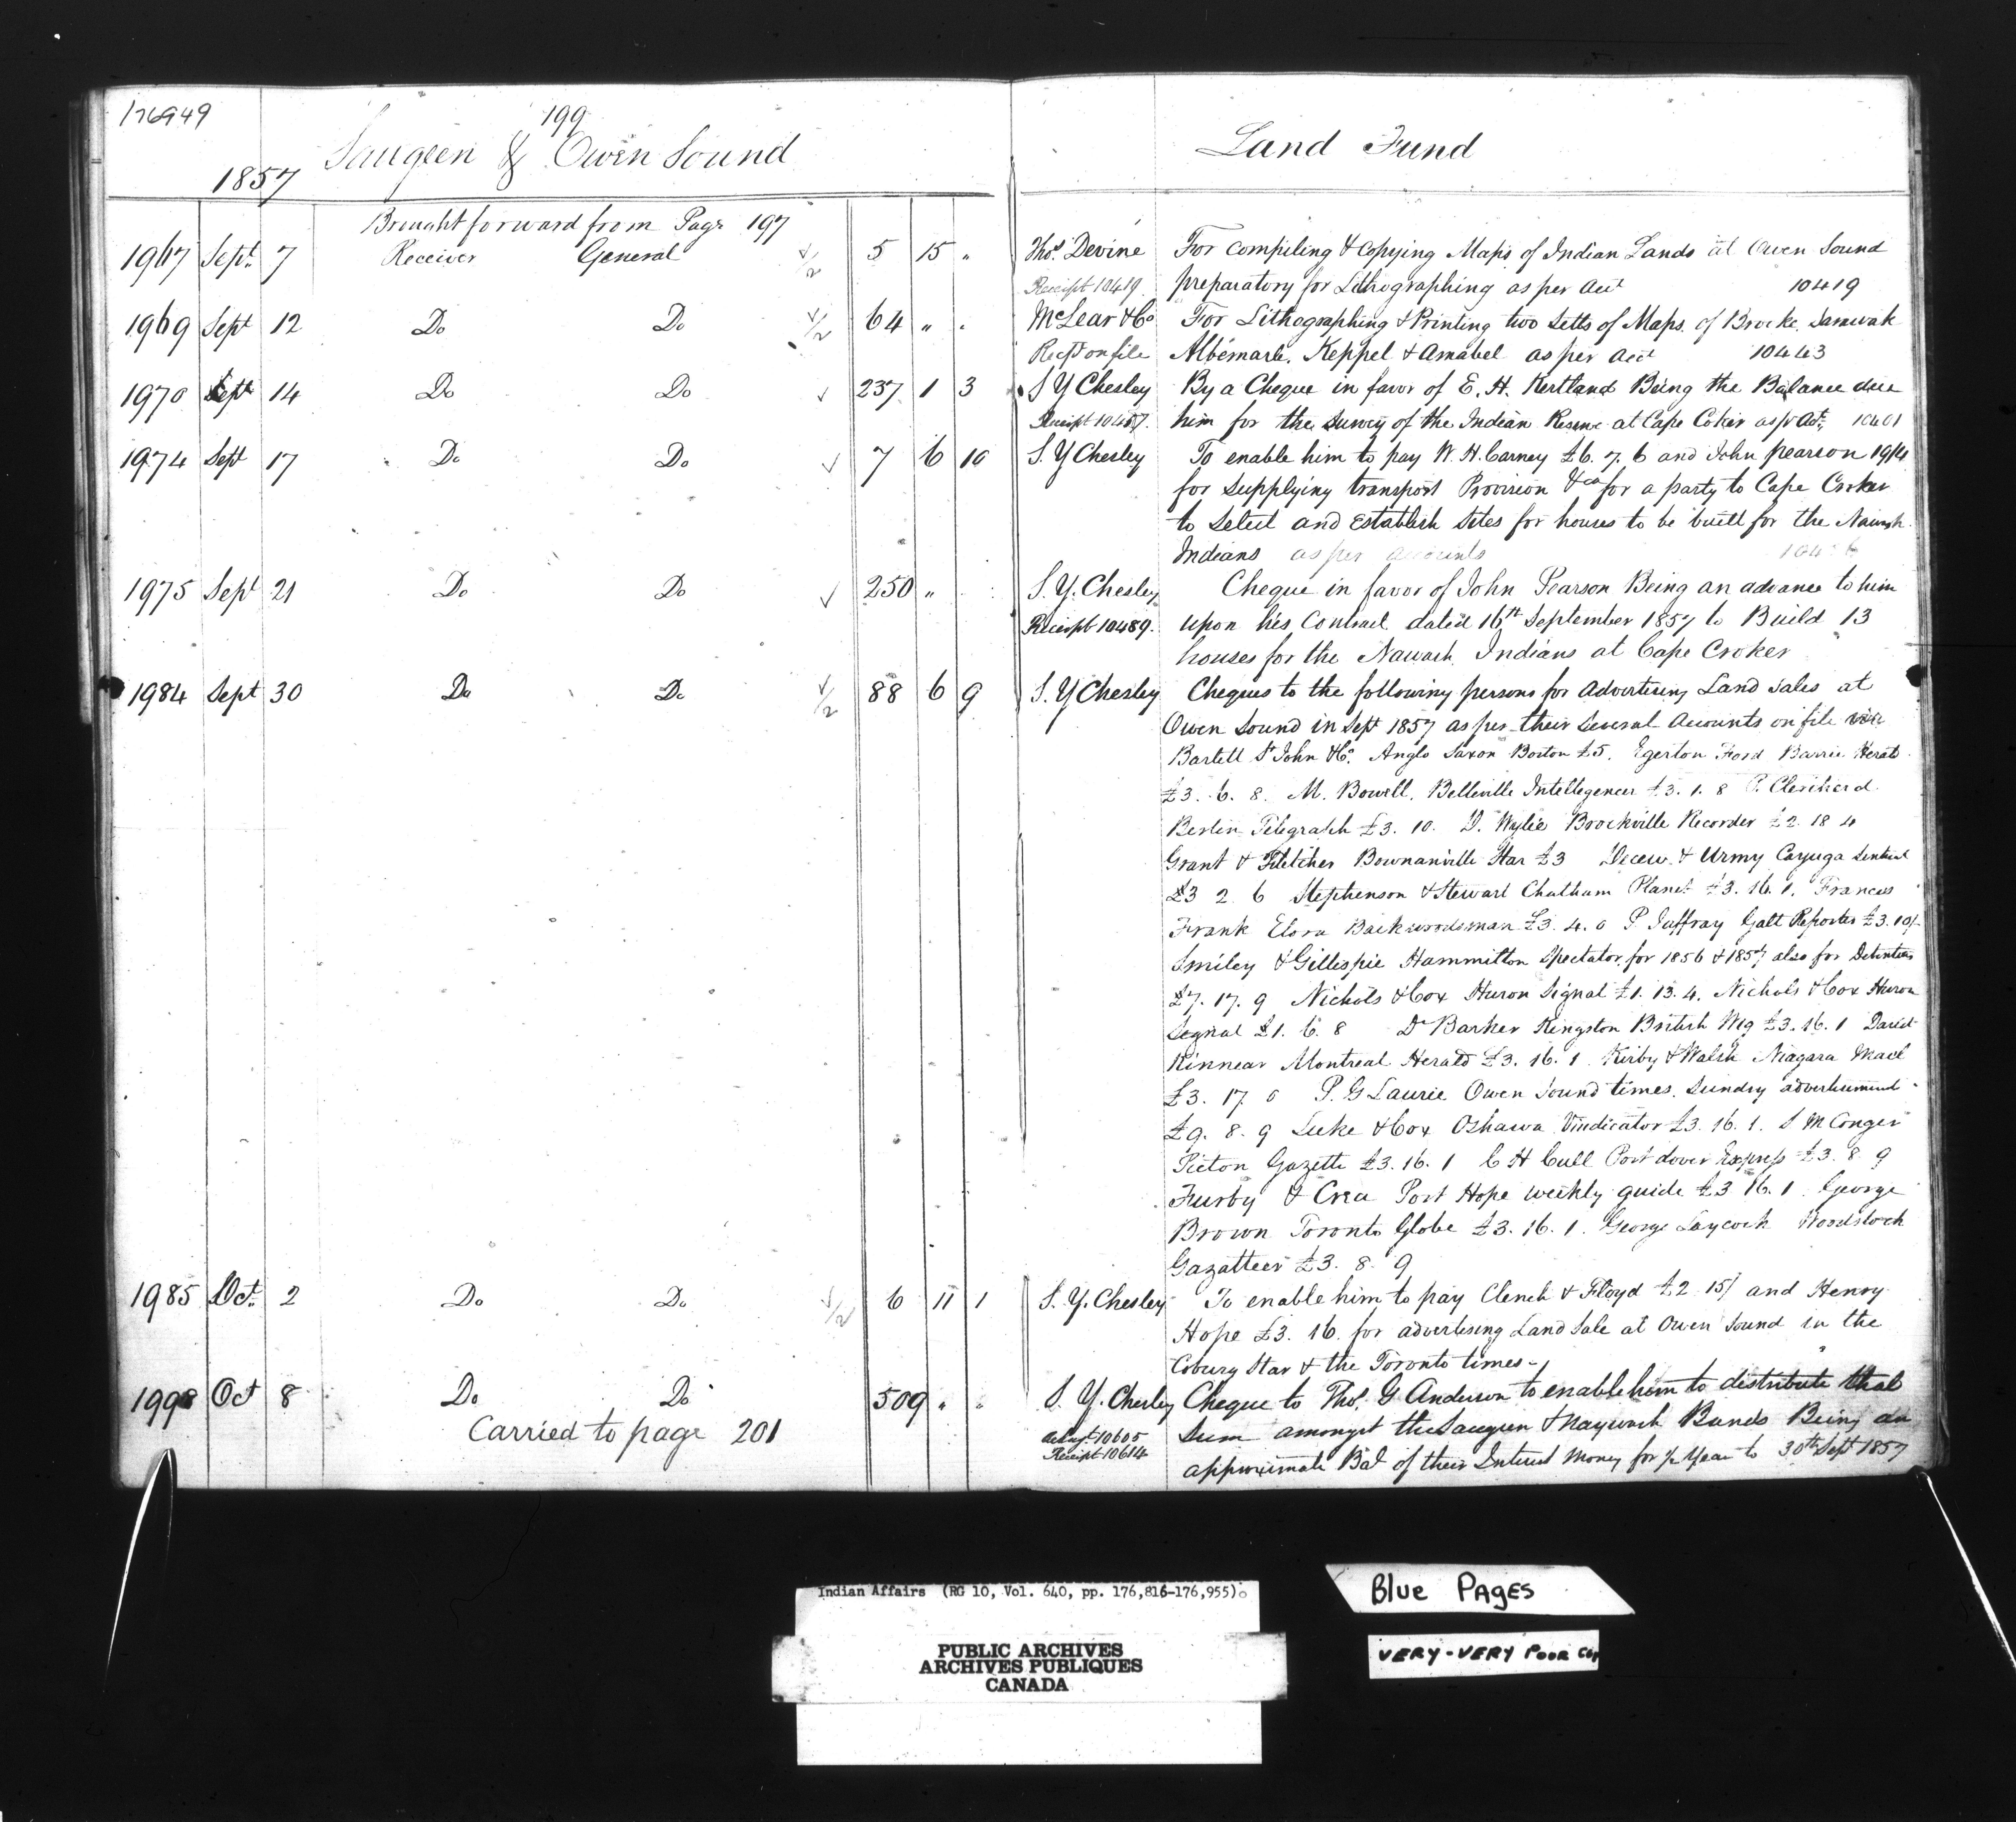 176949
199
Saugeen & Owen Sound
Land Fund
1857
Brought forward from Page 197
1967 Sept. 7 Receiver General 5 15 "
Thos. Devine For compiling & Copying Maps of Indian Lands at Owen Sound
Receipt 10419 preparatory for Lithographing as per acct 10419
1969 Sept 12 Do Do 64 " "
McLear & Co For Lithographing & Printing two Setts of Maps of Brooke, Sarawak
Rect on file Albemarle, Keppel & Amabel as per acct 10443
1970 Sept 14 Do Do 237 1 3
S Y Chesley By a Cheque in favor of E. H. Kertland Being the Balance due
Receipt him for the Survey of the Indian Reserve at Cape Coker as pr act.
1974 Sept 17 Do Do 7 6 10
S. Y Chesley To enable him to pay W. H. Carney £6. 7. 6 and John Pearson 19/4
for Supplying transport Provision &ca for a party to Cape Croker
to Select and Establish Sites for houses to be built for the Nawash
Indians as per accounts
1975 Sept 21 Do Do 250 "
S. Y. Chesley Cheque in favor of John Pearson Being an advance to him
Receipt 10489. upon his Contract dated 16th September 1857 to Build 13
houses for the Nawash Indians at Cape Croker
1984 Sept 30 Do Do 88 6 9
S. Y Chesley Cheques to the following persons for Advertising Land Sales at
Owen Sound in Sept 1857 as per their Several Accounts on file
Bartell St John & Co. Anglo Saxon Boston £5. Egerton Ford Barrie Herald
£3. 6. 8. M. Bowell, Belleville Intellegencer £3. 1. 8 P.
Berlin Telegraph £3. 10. D. Wylie Brockville Recorder £2 18 4
Grant & Fletcher Bowmanville Star £3 Decew & Urmy Cayuga Sentinel
£3 2 6 Stephenson & Stewart Chatham Planet £3. 16. 1. Frances
Frank Elora Backwoodsman £3. 4. 0 P Jaffray Galt Reporter £3. 10/-
Smiley & Gillespie Hammilton Spectator for 1856 & 1857 also for
£7. 17. 9 Nichols & Cox Huron Signal £1. 13. 4. Nichols & Cox Huron
Signal £1. 6. 8 Dr Barker Kingston British Wig £3. 16. 1 David
Kinnear Montreal Herald £3. 16. 1 Kirby & Walsh Niagara Mael
£3. 17. 0 P. G Laurie Owen Sound times. Sundry advertisement
£9. 8. 9 Luke & Cox Oshawa Vindicator £3. 16. 1. S M Conger
Picton Gazette £3. 16. 1 C H Cull Port dover Express £3. 8. 9
Furby & Crea Port Hope weekly guide £3 16. 1 George
Brown Toronto Globe £3. 16. 1. George Laycock Woodstock
Gazatteer £3. 8. 9
1985 Oct. 2 Do Do 6 11 1
S. Y. Chesley To enable him to pay Clench & Floyd £2 15/ and Henry
Hope £3. 16. for advertising Land Sale at Owen Sound in the
Coburg Star & the Toronto times
1998 Oct 8 Do Do 509 " "
S. Y. Chesley Cheque to Thos. G Anderson to enable him to distribute that
10605 Sum amongst the Saugeen & Naywash Bands Being an
Receipt 10614 approximate Bal of their Interest Money for ½ Year to 30th Sept 1857
Carried to page 201
Indian Affairs (RG 10, Vol. 640, pp. 176,816-176,955)
PUBLIC ARCHIVES
ARCHIVES PUBLIQUES
CANADA
Blue PAGES
VERY-VERY POOR